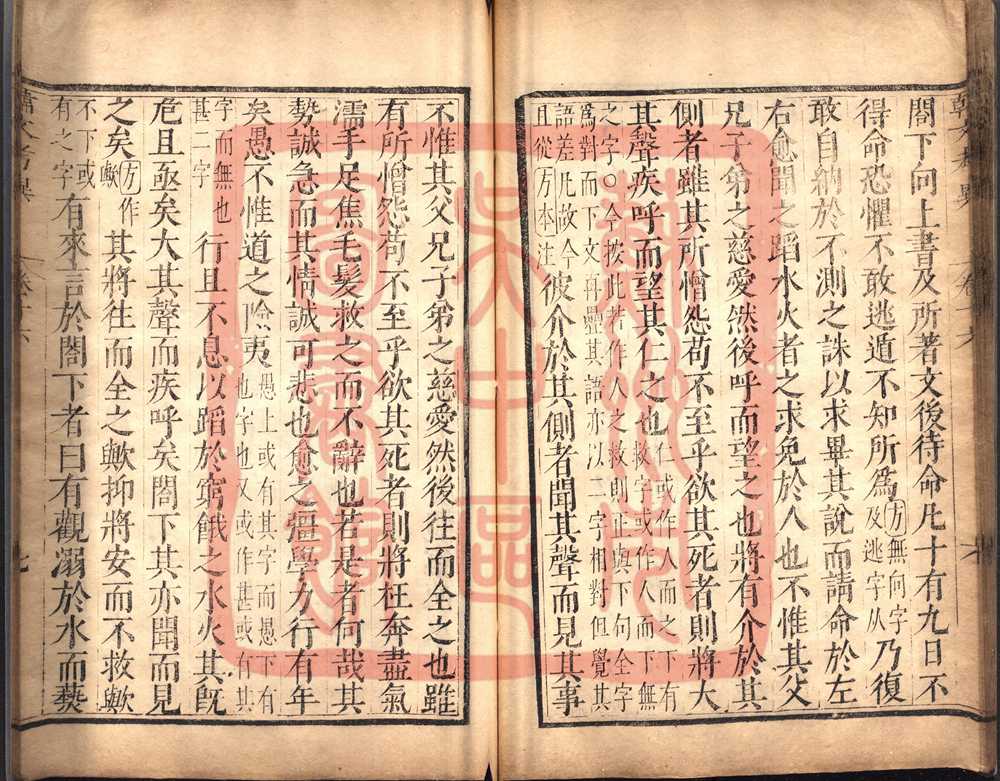 閤下向上書及所著文後待命凡十有九日不
得命恐懼不敢逃遁不知所爲方無向字及逃字从乃復
敢自納於不測之誅以求畢其說而請命於左
右愈聞之蹈水火者之求免於人也不惟其父
兄子弟之慈愛然後呼而望之也將有介於其
側者雖其所憎怨苟不至乎欲其死者則將大
其聲疾呼而望其仁之也仁或作人而之下有救字或作人而下無
之字○今按此若作人之救則止與下句全字
爲對而下文再疊其語亦以二字相對但覺其
語差凡故今
且從方本注彼介於其側者聞其聲而見其事
不惟其父兄子弟之慈愛然後往而全之也雖
有所憎怨苟不至乎欲其死者則將狂奔盡氣
濡手足焦毛髮救之而不辭也若是者何哉其
勢誠急而其情誠可悲也愈之彊學力行有年
矣愚不惟道之險夷愚上或有其字而愚下有也字也又或作甚或有其
字而無也
甚二字行且不息以蹈於窮餓之水火其旣
危且亟矣大其聲而疾呼矣閤下其亦聞而見
之矣方作歟其將往而全之歟抑將安而不救歟
不下或
有之字有來言於閤下者曰有觀溺於水而爇